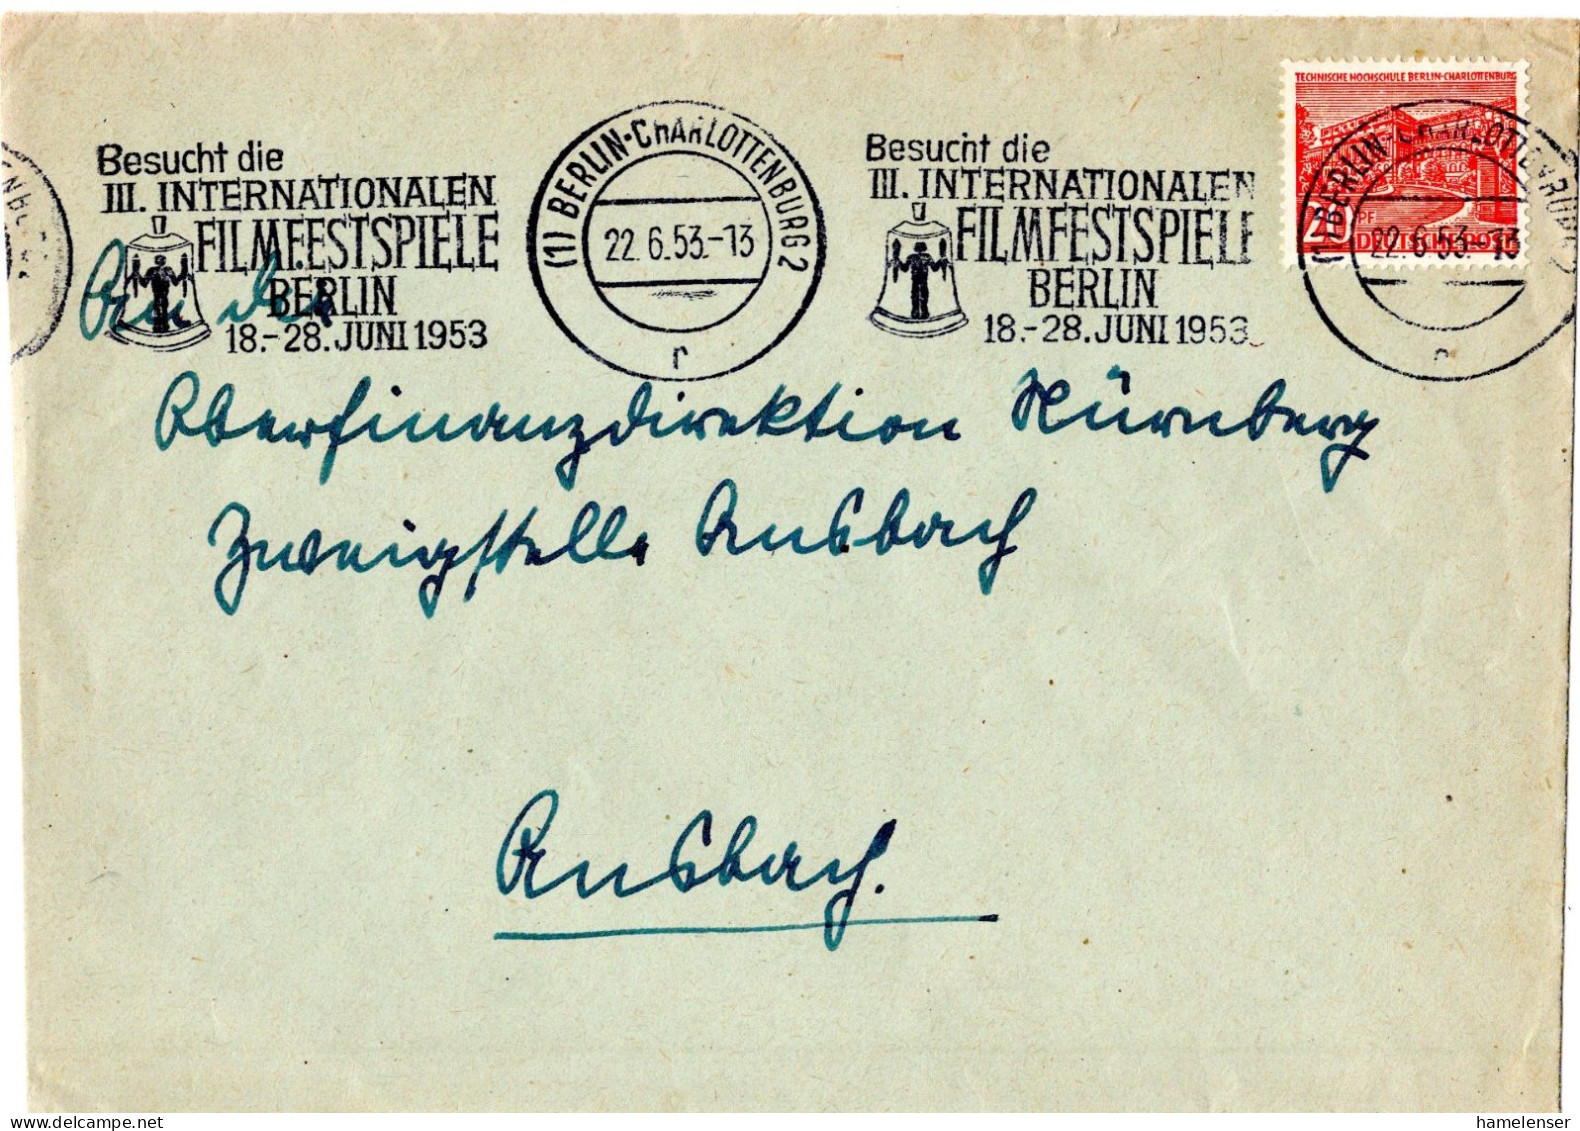 TECHNISCHE HOCHSCHULE BERLIN-CHARLOTTENBURG
20 PF
DEUTSCHE POST
Besucht die
III. INTERNATIONALEN
FILMFESTSPIELE
BERLIN
18.-28. JUNI 1953
(1) BERLIN-CHARLOTTENBURG 2
22.6.53.-13
r
Besucht die
III. INTERNATIONALEN
FILMFESTSPIELE
BERLIN
18.-28. JUNI 1953
(1) BERLIN-CHARLOTTENBURG 2
22.6.53.-13
An die
Oberfinanzdirektion Nürnberg
Zweigstelle Ansbach
Ansbach.
hamelenser